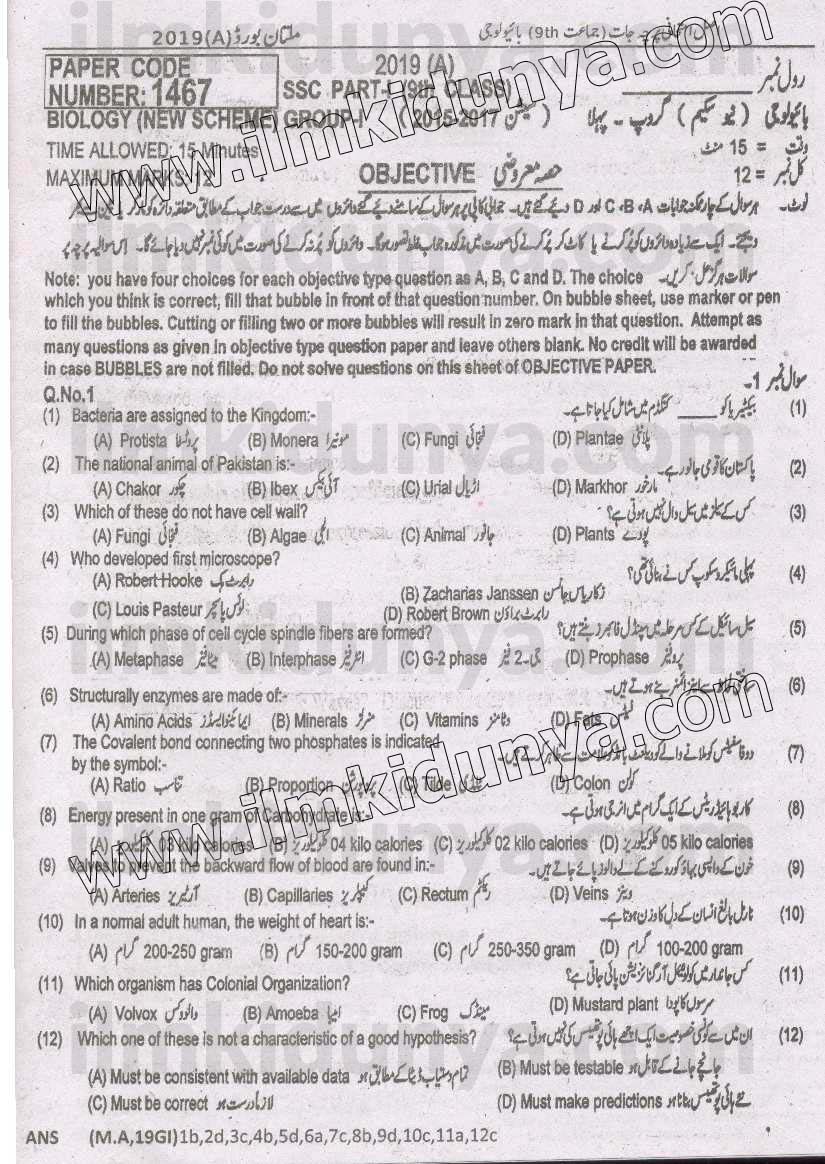 ملتان بورڈ 2019(A) جات (جماعت 9th) بائیولوجی
PAPER CODE NUMBER: 1467
2019 (A)
رول نمبر
SSC PART-I (9th CLASS)
BIOLOGY (NEW SCHEME) GROUP-I
بائیولوجی ( نیو سکیم ) گروپ ۔ پہلا
TIME ALLOWED: 15 Minutes
وقت = 15 منٹ
MAXIMUM MARKS: 12
OBJECTIVE حصہ معروضی
کل نمبر = 12
نوٹ۔ ہر سوال کے چار ممکنہ جوابات C ،B ،A اور D دیئے گئے ہیں۔ جوابی کاپی پر ہر سوال کے سامنے دیئے گئے دائروں میں سے درست جواب کے مطابق متعلقہ دائرہ کو
دیجئے۔ ایک سے زیادہ دائروں کو پُر کرنے یا کاٹ کر پُر کرنے کی صورت میں مذکورہ جواب غلط تصور ہوگا۔ دائروں کو پُر نہ کرنے کی صورت میں کوئی نمبر نہیں دیا جائے گا۔ اس سوالیہ پرچہ پر
سوالات ہرگز حل نہ کریں۔
Note: you have four choices for each objective type question as A, B, C and D. The choice
which you think is correct, fill that bubble in front of that question number. On bubble sheet, use marker or pen
to fill the bubbles. Cutting or filling two or more bubbles will result in zero mark in that question. Attempt as
many questions as given in objective type question paper and leave others blank. No credit will be awarded
in case BUBBLES are not filled. Do not solve questions on this sheet of OBJECTIVE PAPER.
سوال نمبر 1۔
Q.No.1
(1) Bacteria are assigned to the Kingdom:- بیکٹیریا کو ____ کنگڈم میں شامل کیا جاتا ہے۔ (1)
(A) Protista پروٹسٹا (B) Monera مونیرا (C) Fungi فنجائی (D) Plantae پلانٹی
(2) The national animal of Pakistan is:- پاکستان کا قومی جانور ہے۔ (2)
(A) Chakor چکور (B) Ibex آئی بیکس (C) Urial اڑیال (D) Markhor مارخور
(3) Which of these do not have cell wall? کس کے سیلز میں سیل وال نہیں ہوتی ہے؟ (3)
(A) Fungi فنجائی (B) Algae الجی (C) Animal جانور (D) Plants پودے
(4) Who developed first microscope? پہلی مائیکروسکوپ کس نے بنائی تھی؟ (4)
(A) Robert Hooke رابرٹ ہک (B) Zacharias Janssen زکاریاس جانسن
(C) Louis Pasteur لوئس پاسچر (D) Robert Brown رابرٹ براؤن
(5) During which phase of cell cycle spindle fibers are formed? سیل سائیکل کے کس مرحلہ میں سپنڈل فائبرز بنتے ہیں؟ (5)
(A) Metaphase میٹافیز (B) Interphase انٹرفیز (C) G-2 phase جی-2 فیز (D) Prophase پروفیز
(6) Structurally enzymes are made of:- (6)
(A) Amino Acids امائینو ایسڈز (B) Minerals منرلز (C) Vitamins وٹامنز (D) Fats فیٹس
(7) The Covalent bond connecting two phosphates is indicated (7)
by the symbol:-
(A) Ratio تناسب (B) Proportion پروپورشن (C) Tilde (D) Colon کولن
(8) Energy present in one gram of Carbohydrate is:- کاربوہائیڈریٹس کے ایک گرام میں انرجی ہوتی ہے۔ (8)
(A) کلوکیلوریز 03 kilo calories (B) کلوکیلوریز 04 kilo calories (C) کلوکیلوریز 02 kilo calories (D) کلوکیلوریز 05 kilo calories
(9) Valves to prevent the backward flow of blood are found in:- خون کے واپسی بہاؤ کو روکنے کے لئے والوز پائے جاتے ہیں۔ (9)
(A) Arteries آرٹیریز (B) Capillaries کیپلریز (C) Rectum ریکٹم (D) Veins وینز
(10) In a normal adult human, the weight of heart is:- نارمل بالغ انسان کے دل کا وزن ہوتا ہے۔ (10)
(A) گرام 200-250 gram (B) گرام 150-200 gram (C) گرام 250-350 gram (D) گرام 100-200 gram
(11) Which organism has Colonial Organization? کس جاندار میں کولونیل آرگنائزیشن پائی جاتی ہے؟ (11)
(A) Volvox والووکس (B) Amoeba امیبا (C) Frog مینڈک (D) Mustard plant سرسوں کا پودا
(12) Which one of these is not a characteristic of a good hypothesis? ان میں سے کونسی خصوصیت ایک اچھے ہائی پوتھیسس کی نہیں ہوتی ہے؟ (12)
(A) Must be consistent with available data تمام دستیاب ڈیٹا کے مطابق ہو (B) Must be testable جانچے جانے کے قابل ہو
(C) Must be correct لازماً درست ہو (D) Must make predictions
ANS (M.A,19GI)1b,2d,3c,4b,5d,6a,7c,8b,9d,10c,11a,12c
www.ilmkidunya.com
www.ilmkidunya.com
ilmkidunya.com